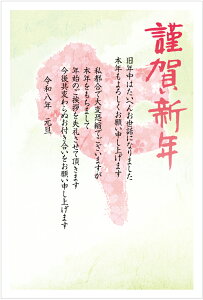 謹賀新年
旧年中はたいへんお世話になりました
本年もよろしくお願い申し上げます
私都合で大変恐縮でございますが
本年をもちまして
年始のご挨拶を失礼させて頂きます
今後共変わらぬお付き合いをお願い申し上げます
令和八年 元旦